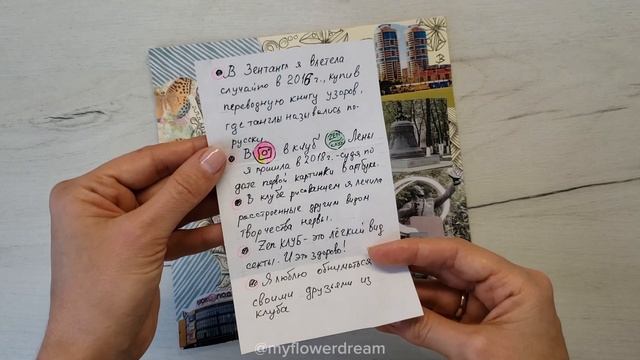 В Зентангл я влетела
случайно в 2016 г., купив
переводную книгу узоров,
где танглы назывались по-
русски
В в клуб ZEN Лены
я пришла в 2018 г. - судя по
дате первой картинки в артбуке.
В клубе рисованием я лечила
расстроенные другим видом
творчества нервы.
Zen клуб - это лёгкий вид
секты. И это здорово!
Я люблю обниматься
своими друзьями из
клуба
@myflowerdream